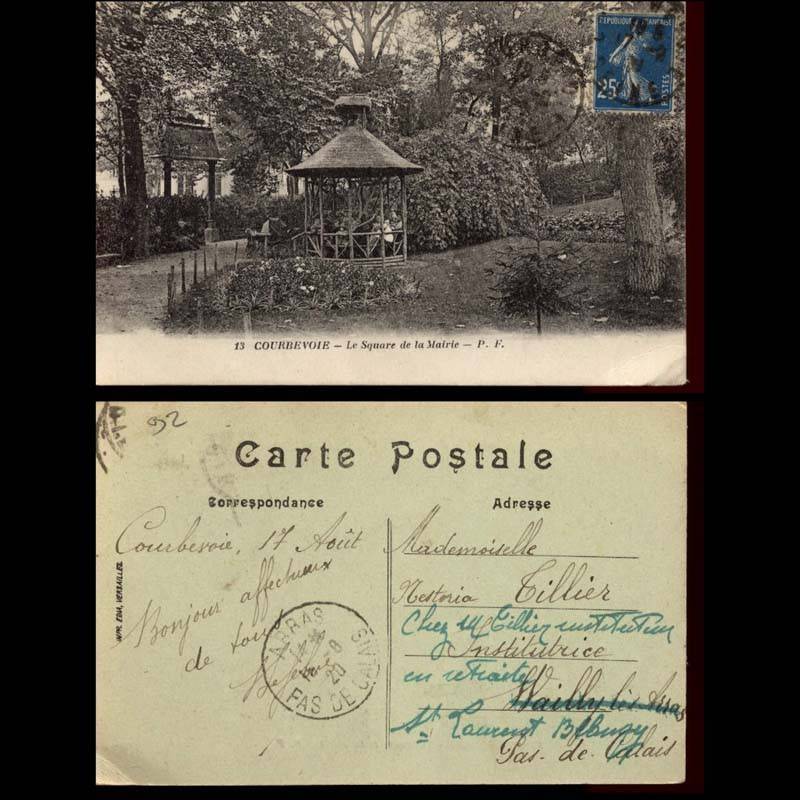 REPUBLIQUE FRANÇAISE
25c
POSTES
13 COURBEVOIE – Le Square de la Mairie – P. F.
92
Carte Postale
Correspondance
Adresse
IMP. EDIA, VERSAILLES
Courbevoie, 17 Août
Bonjour affectueux
de tous
ARRAS
8
20
PAS DE CALAIS
Mademoiselle
Nestoria Tillier
Chez M Tillier instituteur
Institutrice
en retraite
Wailly lès Arras
St Laurent Blangy
Pas-de-Calais